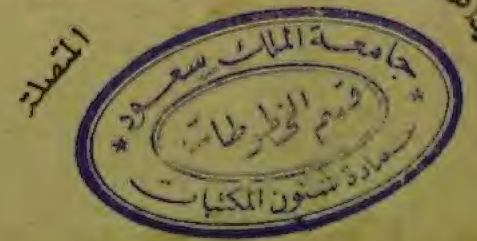 المتصلة
جامعة الملك سعود
قسم المخطوطات
عمادة شئون المكتبات